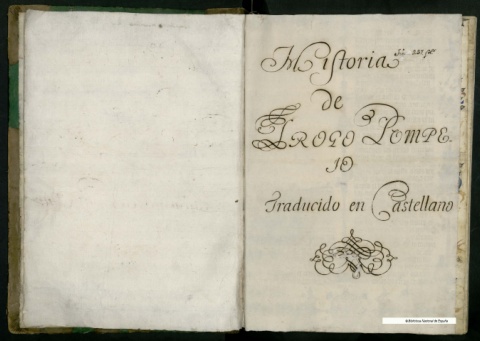 Historia
de
Trogo Pompe-
io
Traducido en Castellano
Biblioteca Nacional de España